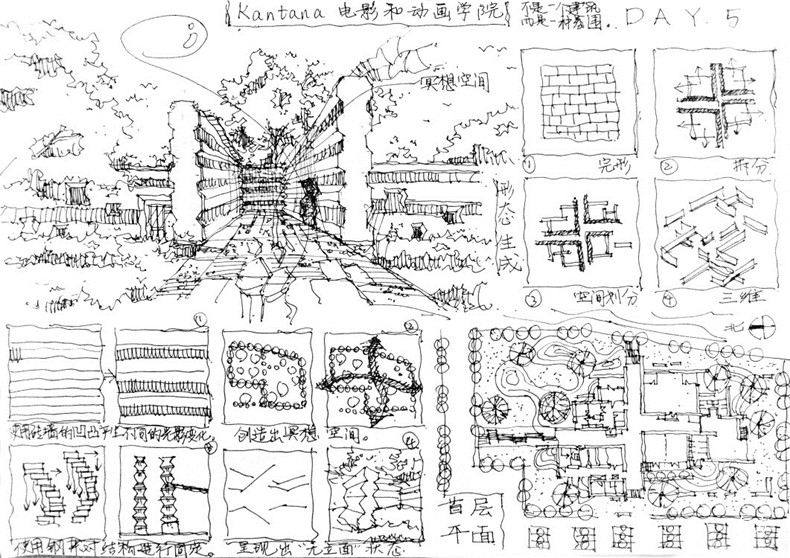 Kantana 电影和动画学院
不是一个建筑
而是一种氛围。
DAY. 5
冥想空间
形态生成
① 完形
② 拆分
③ 空间划分
④ 三维
北
①
②
使用砖墙的凹凸产生不同的光影变化。
创造出冥想空间。
③
④
使用钢 对结构进行固定。
呈现出“无立面”状态
首层
平面